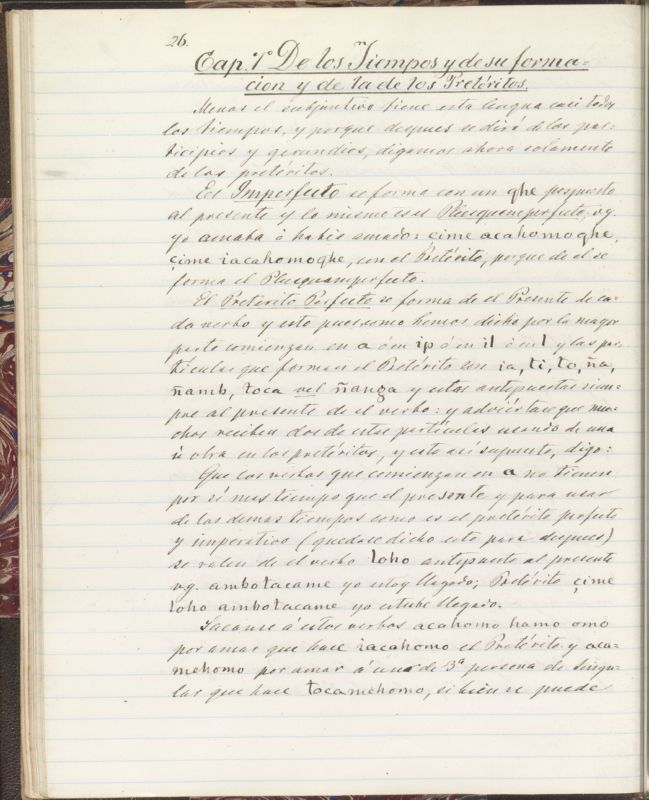 26.
Cap. 1º De los Tiempos y de su forma=
cion y de la de los Pretéritos.
Menos el subjuntivo tiene esta lengua casi todos
los tiempos, y porque despues se dirá de los par=
ticipios y gerundios, digamos ahora solamente
de los pretéritos.
El Imperfecto se forma con un qhe pospuesto
al presente y lo mismo es el Plusquamperfecto, v.g.
yo amaba ó habia amado: çime acahomoqhe,
çime iacahomoqhe, con el Pretérito, porque de el se
forma el Plusquamperfecto.
El Pretérito Perfecto se forma de el Presente de ca-
da verbo y esto pues como hemos dicho por la mayor
parte comienzan en a ó en ip ó en il ó en l y las par
tículas que forman el Pretérito son ia, ti, to, ña,
ñamb, toca vel ñanga y estas antepuestas siem-
pre al presente de el verbo: y adviértase que mu-
chos reciben dos de estas partículas usando de una
ú otra en los pretéritos, y esto así supuesto, digo:
Que los verbos que comienzan en a no tienen
por sí mas tiempo que el presente y para usar
de los demas tiempos como es el pretérito perfecto
y imperativo (quedase dicho esto para despues)
se valen de el verbo loho antepuesto al presente
v.g. ambotacame yo estoy llegado; Pretérito çime
loho ambotacame yo estube llegado.
Sacanse á estos verbos acahomo hamo omo
por amar que hace iacahomo el Pretérito y aca=
mehomo por amar á uno de 3ª persona de singu-
lar que hace tocamehomo, si bien se puede